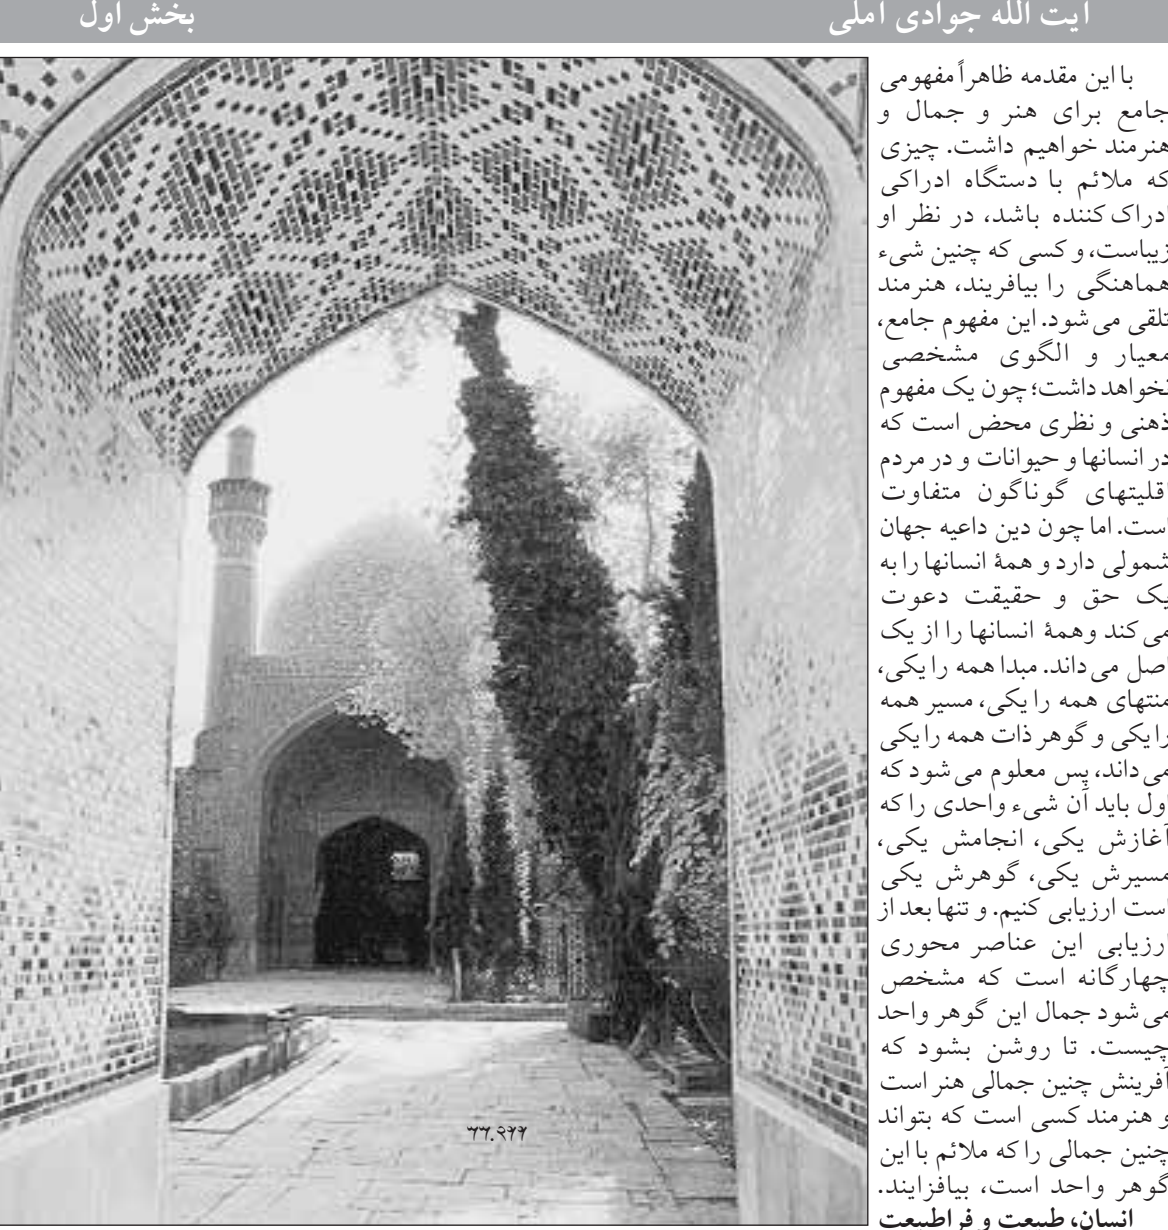 آیت الله جوادی آملی
بخش اول
با این مقدمه ظاهراً مفهومی
جامع برای هنر و جمال و
هنرمند خواهیم داشت. چیزی
که ملائم با دستگاه ادراکی
ادراک‌کننده باشد، در نظر او
زیباست، و کسی که چنین شیء
هماهنگی را بیافریند، هنرمند
تلقی می‌شود. این مفهوم جامع،
معیار و الگوی مشخصی
نخواهد داشت؛ چون یک مفهوم
ذهنی و نظری محض است که
در انسانها و حیوانات و در مردم
اقلیتهای گوناگون متفاوت
است. اما چون دین داعیه جهان
شمولی دارد و همهٔ انسانها را به
یک حق و حقیقت دعوت
می‌کند وهمهٔ انسانها را از یک
اصل می‌داند. مبدا همه را یکی،
منتهای همه را یکی، مسیر همه
را یکی و گوهر ذات همه را یکی
می‌داند، پس معلوم می‌شود که
اول باید آن شیء واحدی را که
آغازش یکی، انجامش یکی،
مسیرش یکی، گوهرش یکی
است ارزیابی کنیم. و تنها بعد از
ارزیابی این عناصر محوری
چهارگانه است که مشخص
می‌شود جمال این گوهر واحد
چیست. تا روشن بشود که
آفرینش چنین جمالی هنر است
و هنرمند کسی است که بتواند
چنین جمالی را که ملائم با این
گوهر واحد است، بیافزایند.
انسان، طبیعت و فراطبیعت